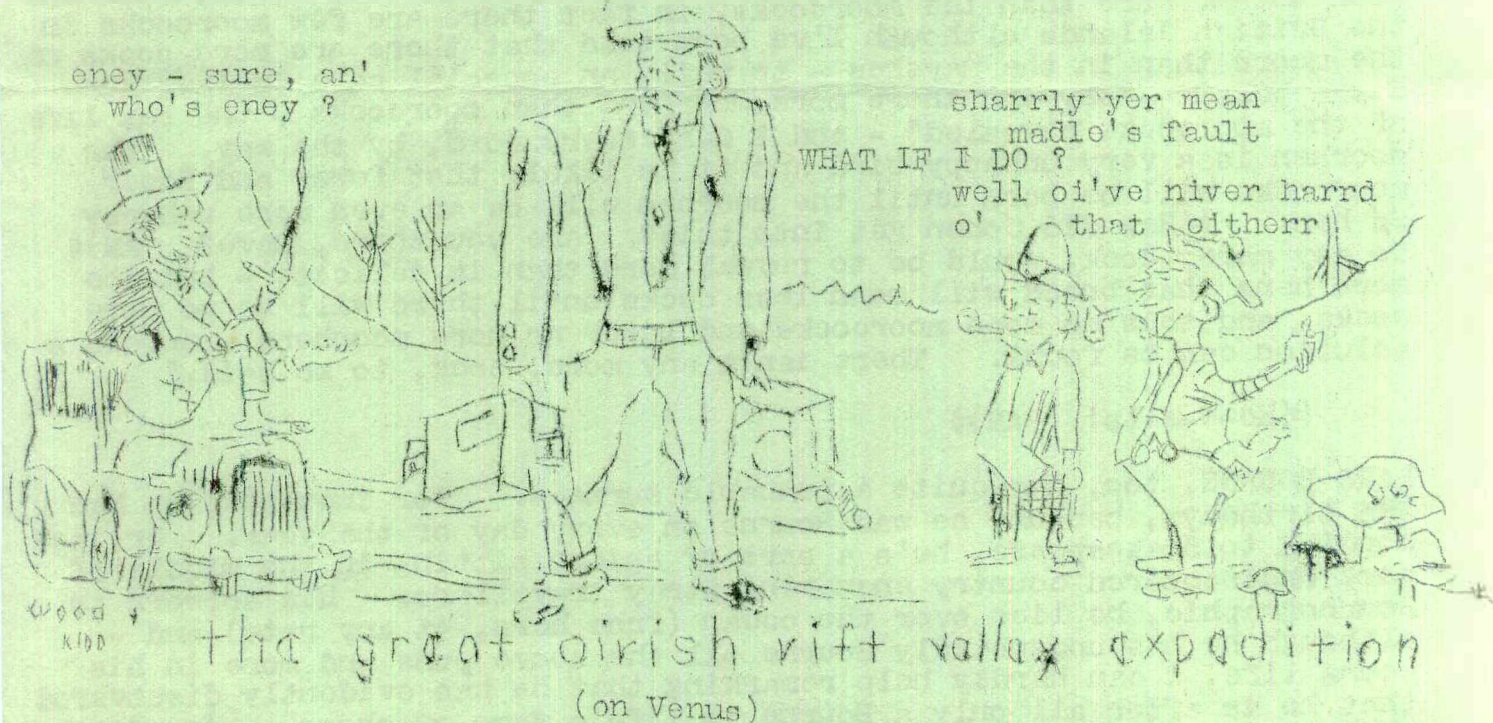 eney - sure, an'
who's eney ?
sharrly yer mean
madle's fault
WHAT IF I DO ?
well oi've niver harrd
o' that oitherr
WOOD +
KIDD
tha great oirish rift valley expedition
(on Venus)